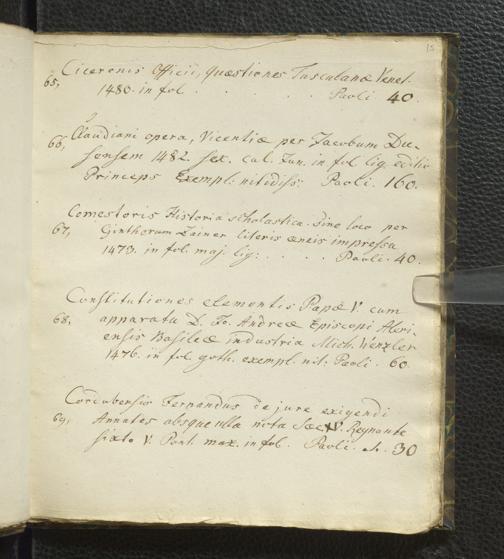 15
65, Ciceronis Officii, quæstiones Tusculanæ Venet.
1480. in fol . . . . . Paoli 40.
66, Claudiani opera, Vicentiæ per Jacobum Du-
sensem 1482. sex. cal. Jun. in fol lig. editio
Princeps Exempl: nitidiss: Paoli. 160.
Comestoris Historia scholastica. Sine loco per
67, Ginthorum Zainer literis æneis impressa
1473. in fol. maj. lig: . . . . Paoli. 40.
Constitutiones Clementis Papæ V. cum
68, apparatu D. Jo. Andreæ Episcopi Aleri-
ensis Basileæ industria Mich. Wenzler
1476. in fol. goth. exempl. nit: Paoli. 60.
Cordubensis Fernandus de jure exigendi
69, Annates absque ulla nota Sæc. XV. Regnante
Sixto V. Pont. max. in fol. Paoli. 30